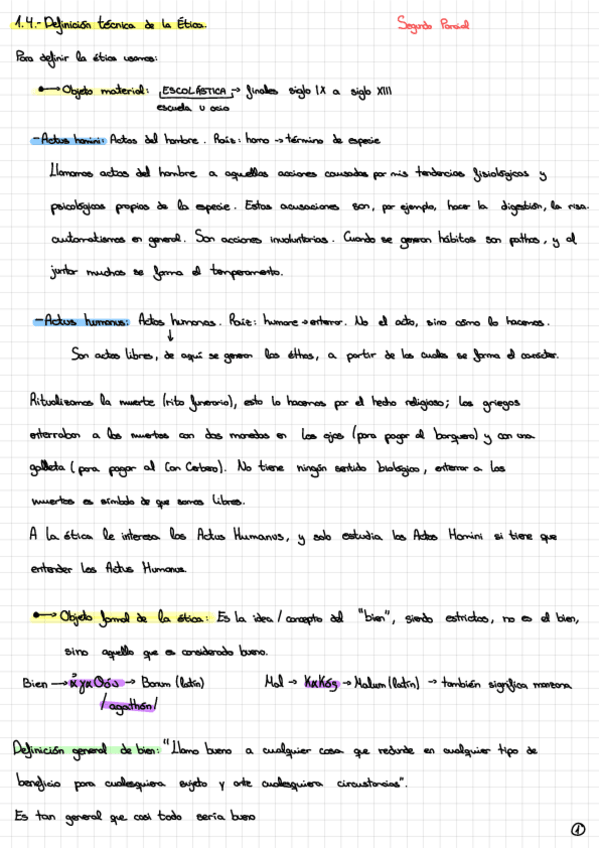 1.4.- Definición técnica de la Ética.
Segundo Parcial
Para definir la ética usamos:
Objeto material: ESCOLÁSTICA → finales siglo IX a siglo XIII
escuela u ocio
- Actus homini: Actos del hombre. Raíz: homo → término de especie
Llamamos actos del hombre a aquellas acciones causadas por mis tendencias fisiológicas y
psicológicas propias de la especie. Estas acusaciones son, por ejemplo, hacer la digestión, la risa,
automatismos en general. Son acciones involuntarias. Cuando se generan hábitos son pathos, y al
juntar muchos se forma el temperamento.
- Actus humanus: Actos humanos. Raíz: humare → enterrar. No el acto, sino cómo lo hacemos.
↓
Son actos libres, de aquí se generan los éthos, a partir de los cuales se forma el carácter.
Ritualizamos la muerte (rito funerario), esto lo hacemos por el hecho religioso; los griegos
enterraban a los muertos con dos monedas en los ojos (para pagar al barquero) y con una
galleta (para pagar al Can Cerbero). No tiene ningún sentido biológico, enterrar a los
muertos es símbolo de que somos libres.
A la ética le interesa los Actus Humanus, y solo estudia los Actos Homini si tiene que
entender los Actus Humanus.
Objeto formal de la ética: Es la idea / concepto del "bien", siendo estrictos, no es el bien,
sino aquello que es considerado bueno.
Bien → ἀγαθός → Bonum (latín) Mal → Κακός → Malum (latín) → también significa manzana
/agathón/
Definición general de bien: "Llamo bueno a cualquier cosa que redunde en cualquier tipo de
beneficio para cualesquiera sujeto y ante cualesquiera circustancias".
Es tan general que casi todo sería bueno
1